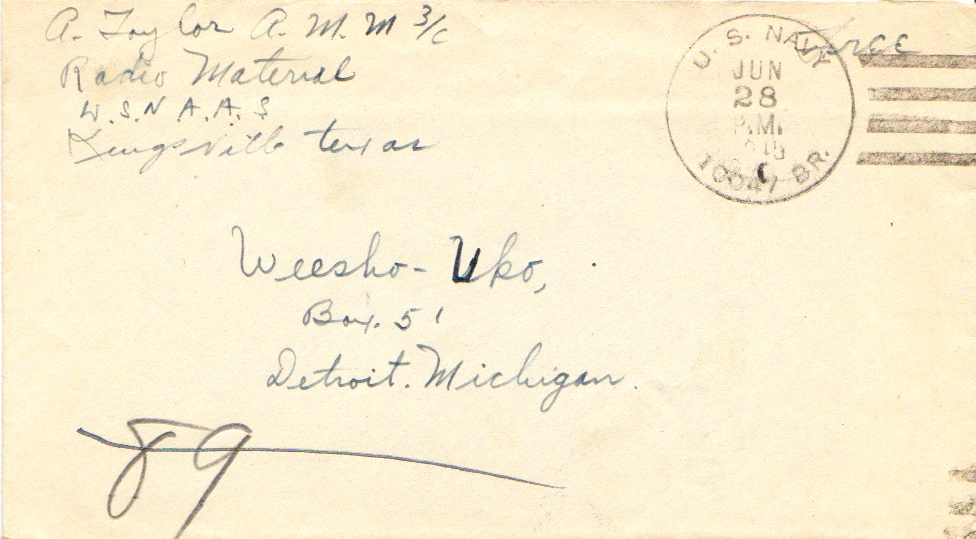 A. Taylor A. M. M 3/c
Radio Material
W.S.N A.A.S
Kingsville texas
Free
U. S. NAVY
JUN
28
P.M.
10047 BR.
Weesho-Uko,
Box. 51
Detroit. Michigan.
89